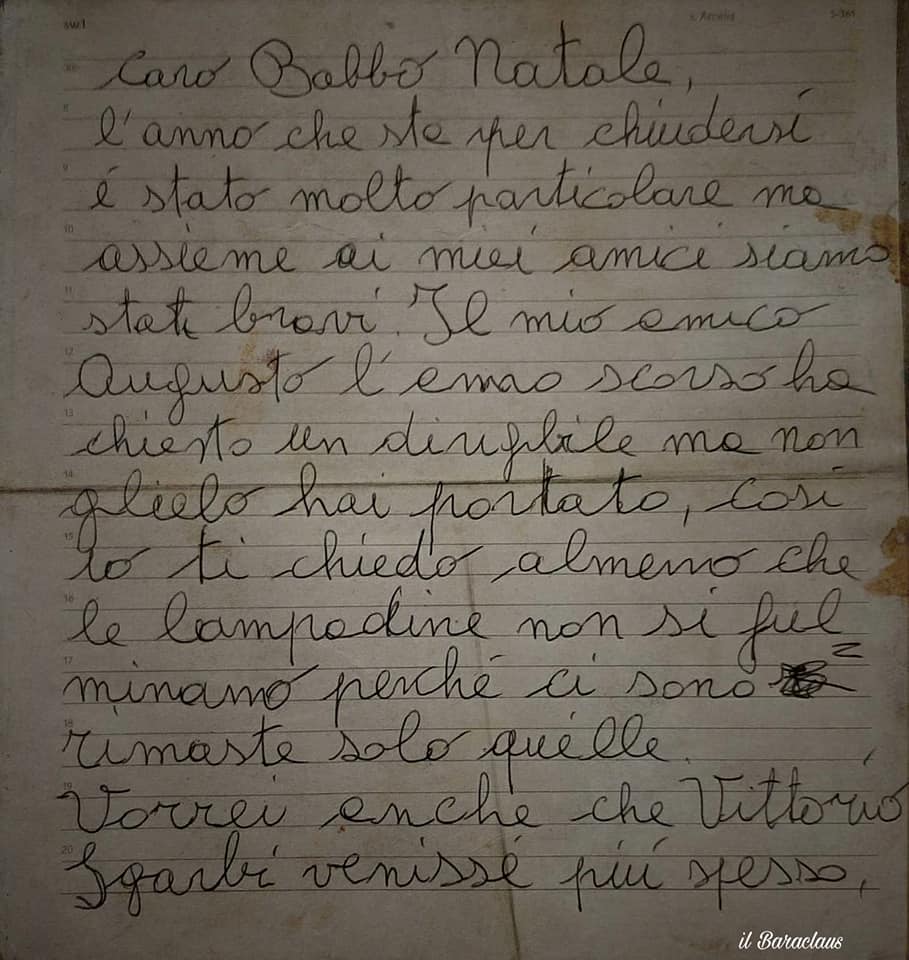 sw1 s. Amelia 5-361
Caro Babbo Natale,
l'anno che sta per chiudersi
é stato molto particolare ma
8
9
assieme ai miei amici siamo
10
stati bravi. Il mio amico
11
Augusto l'anno scorso ha
12
chiesto un dirigibile ma non
13
glielo hai portato, così
14
io ti chiedo almeno che
15
le lampadine non si ful
16
minano perché ci sono
17
rimaste solo quelle.
18
Vorrei anche che Vittorio
19
Sgarbi venisse più spesso,
20
il Baraclaus